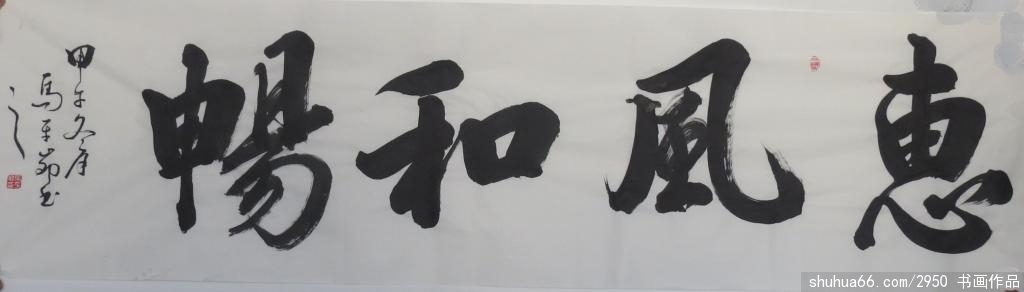 惠風和暢
甲午
馬
shuhua66.com/2950 书画作品